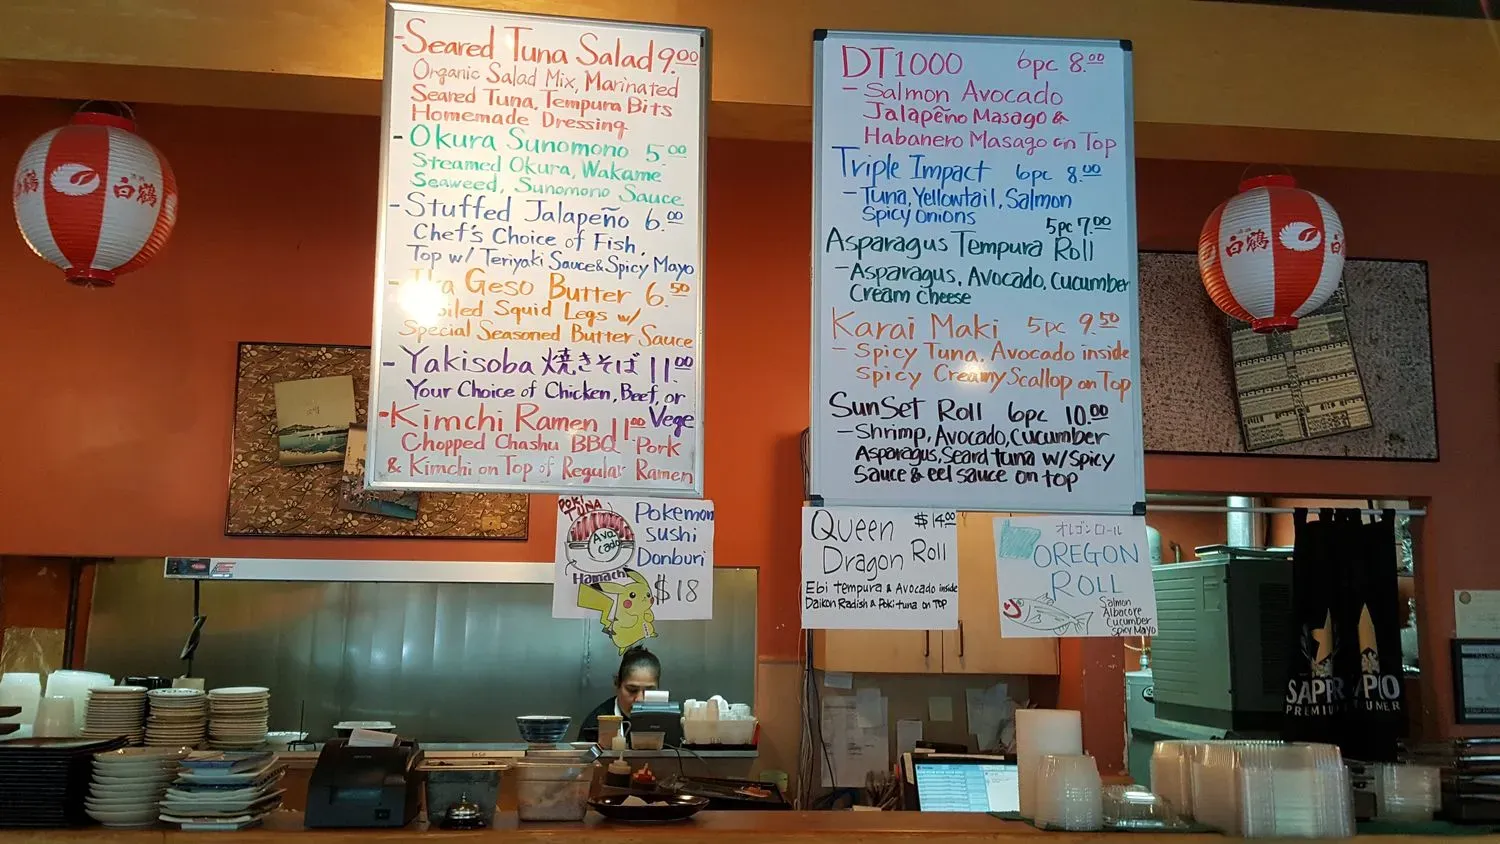 -Seared Tuna Salad 9.00
Organic Salad Mix, Marinated
Seared Tuna, Tempura Bits
Homemade Dressing
-Okura Sunomono 5.00
Steamed Okura, Wakame
Seaweed, Sunomono Sauce
-Stuffed Jalapeño 6.00
Chef's Choice of Fish,
Top w/ Teriyaki Sauce & Spicy Mayo
Geso Butter 6.50
Squid Legs w/
Special Seasoned Butter Sauce
-Yakisoba 焼きそば 11.00
Your Choice of Chicken, Beef, or
Vege
-Kimchi Ramen 11.00
Chopped Chashu BBQ Pork
& Kimchi on Top of Regular Ramen
DT1000 6pc 8.00
-Salmon Avocado
Jalapeño Masago &
Habanero Masago on Top
Triple Impact 6pc 8.00
-Tuna, Yellowtail, Salmon
Spicy onions
5pc 7.00
Asparagus Tempura Roll
-Asparagus, Avocado, Cucumber
Cream cheese
Karai Maki 5pc 9.50
-Spicy Tuna, Avocado inside
Spicy Creamy Scallop on Top
SunSet Roll 6pc 10.00
-Shrimp, Avocado, Cucumber
Asparagus, Seard tuna w/ Spicy
Sauce & eel sauce on top
POKI
TUNA
Avo
cado
Hamachi
Pokemon
Sushi
Donburi
$18
Queen $14.00
Dragon Roll
Ebi tempura & Avocado inside
Daikon Radish & Poki tuna on Top
オレゴンロール
OREGON
ROLL
Salmon
Albacore
Cucumber
Spicy Mayo
白鶴
白鶴
SAPPRO
PREMIUM